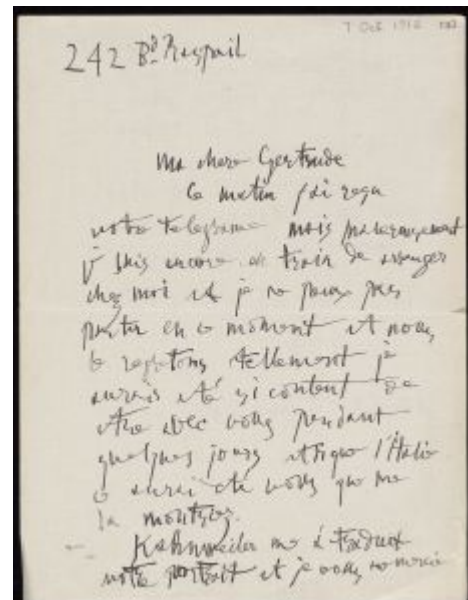 7 Oct 1912
242 Bd Raspail
Ma chere Gertrude
Ce matin j'ai reçu
votre telegrame mais malereusement
je suis encore en train de arranger
chez moi et je ne peux pas
partir en ce moment et nous
le regretons tellement je
aurais eté si content de
etre avec vous pendant
quelques jours et que l'Italie
ce aurai eté vous que me
la montrez.
Kahnweiler me à traduit
votre portrait et je vous remercie